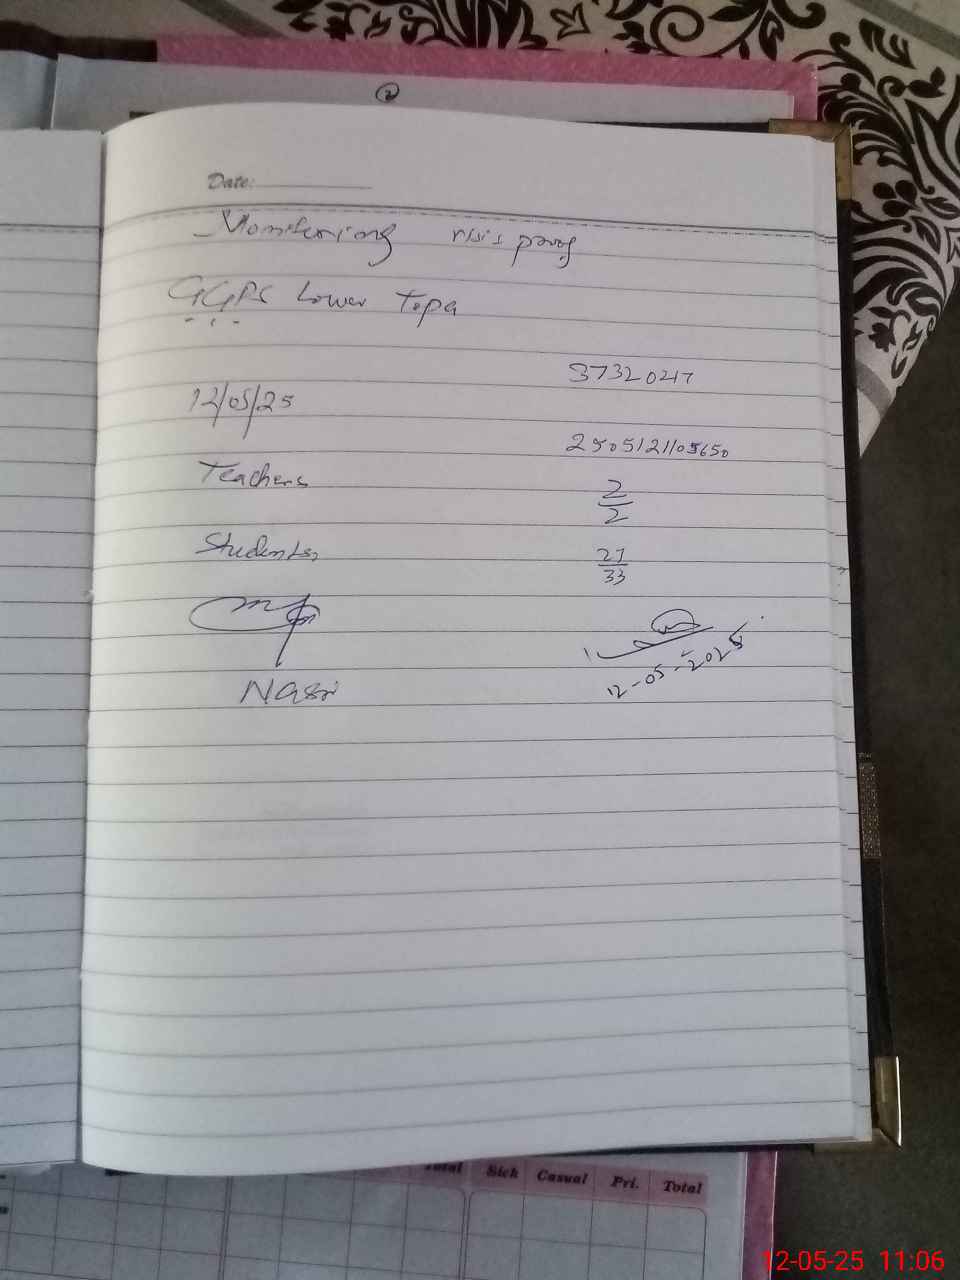 2
Date:
Monitering visit proof
GGPS Lower Topa
37320217
12/05/25
2505121105650
Teachers 2/2
Students 27/33
12-05-2025
Total Sick Casual Pri. Total
12-05-25 11:06